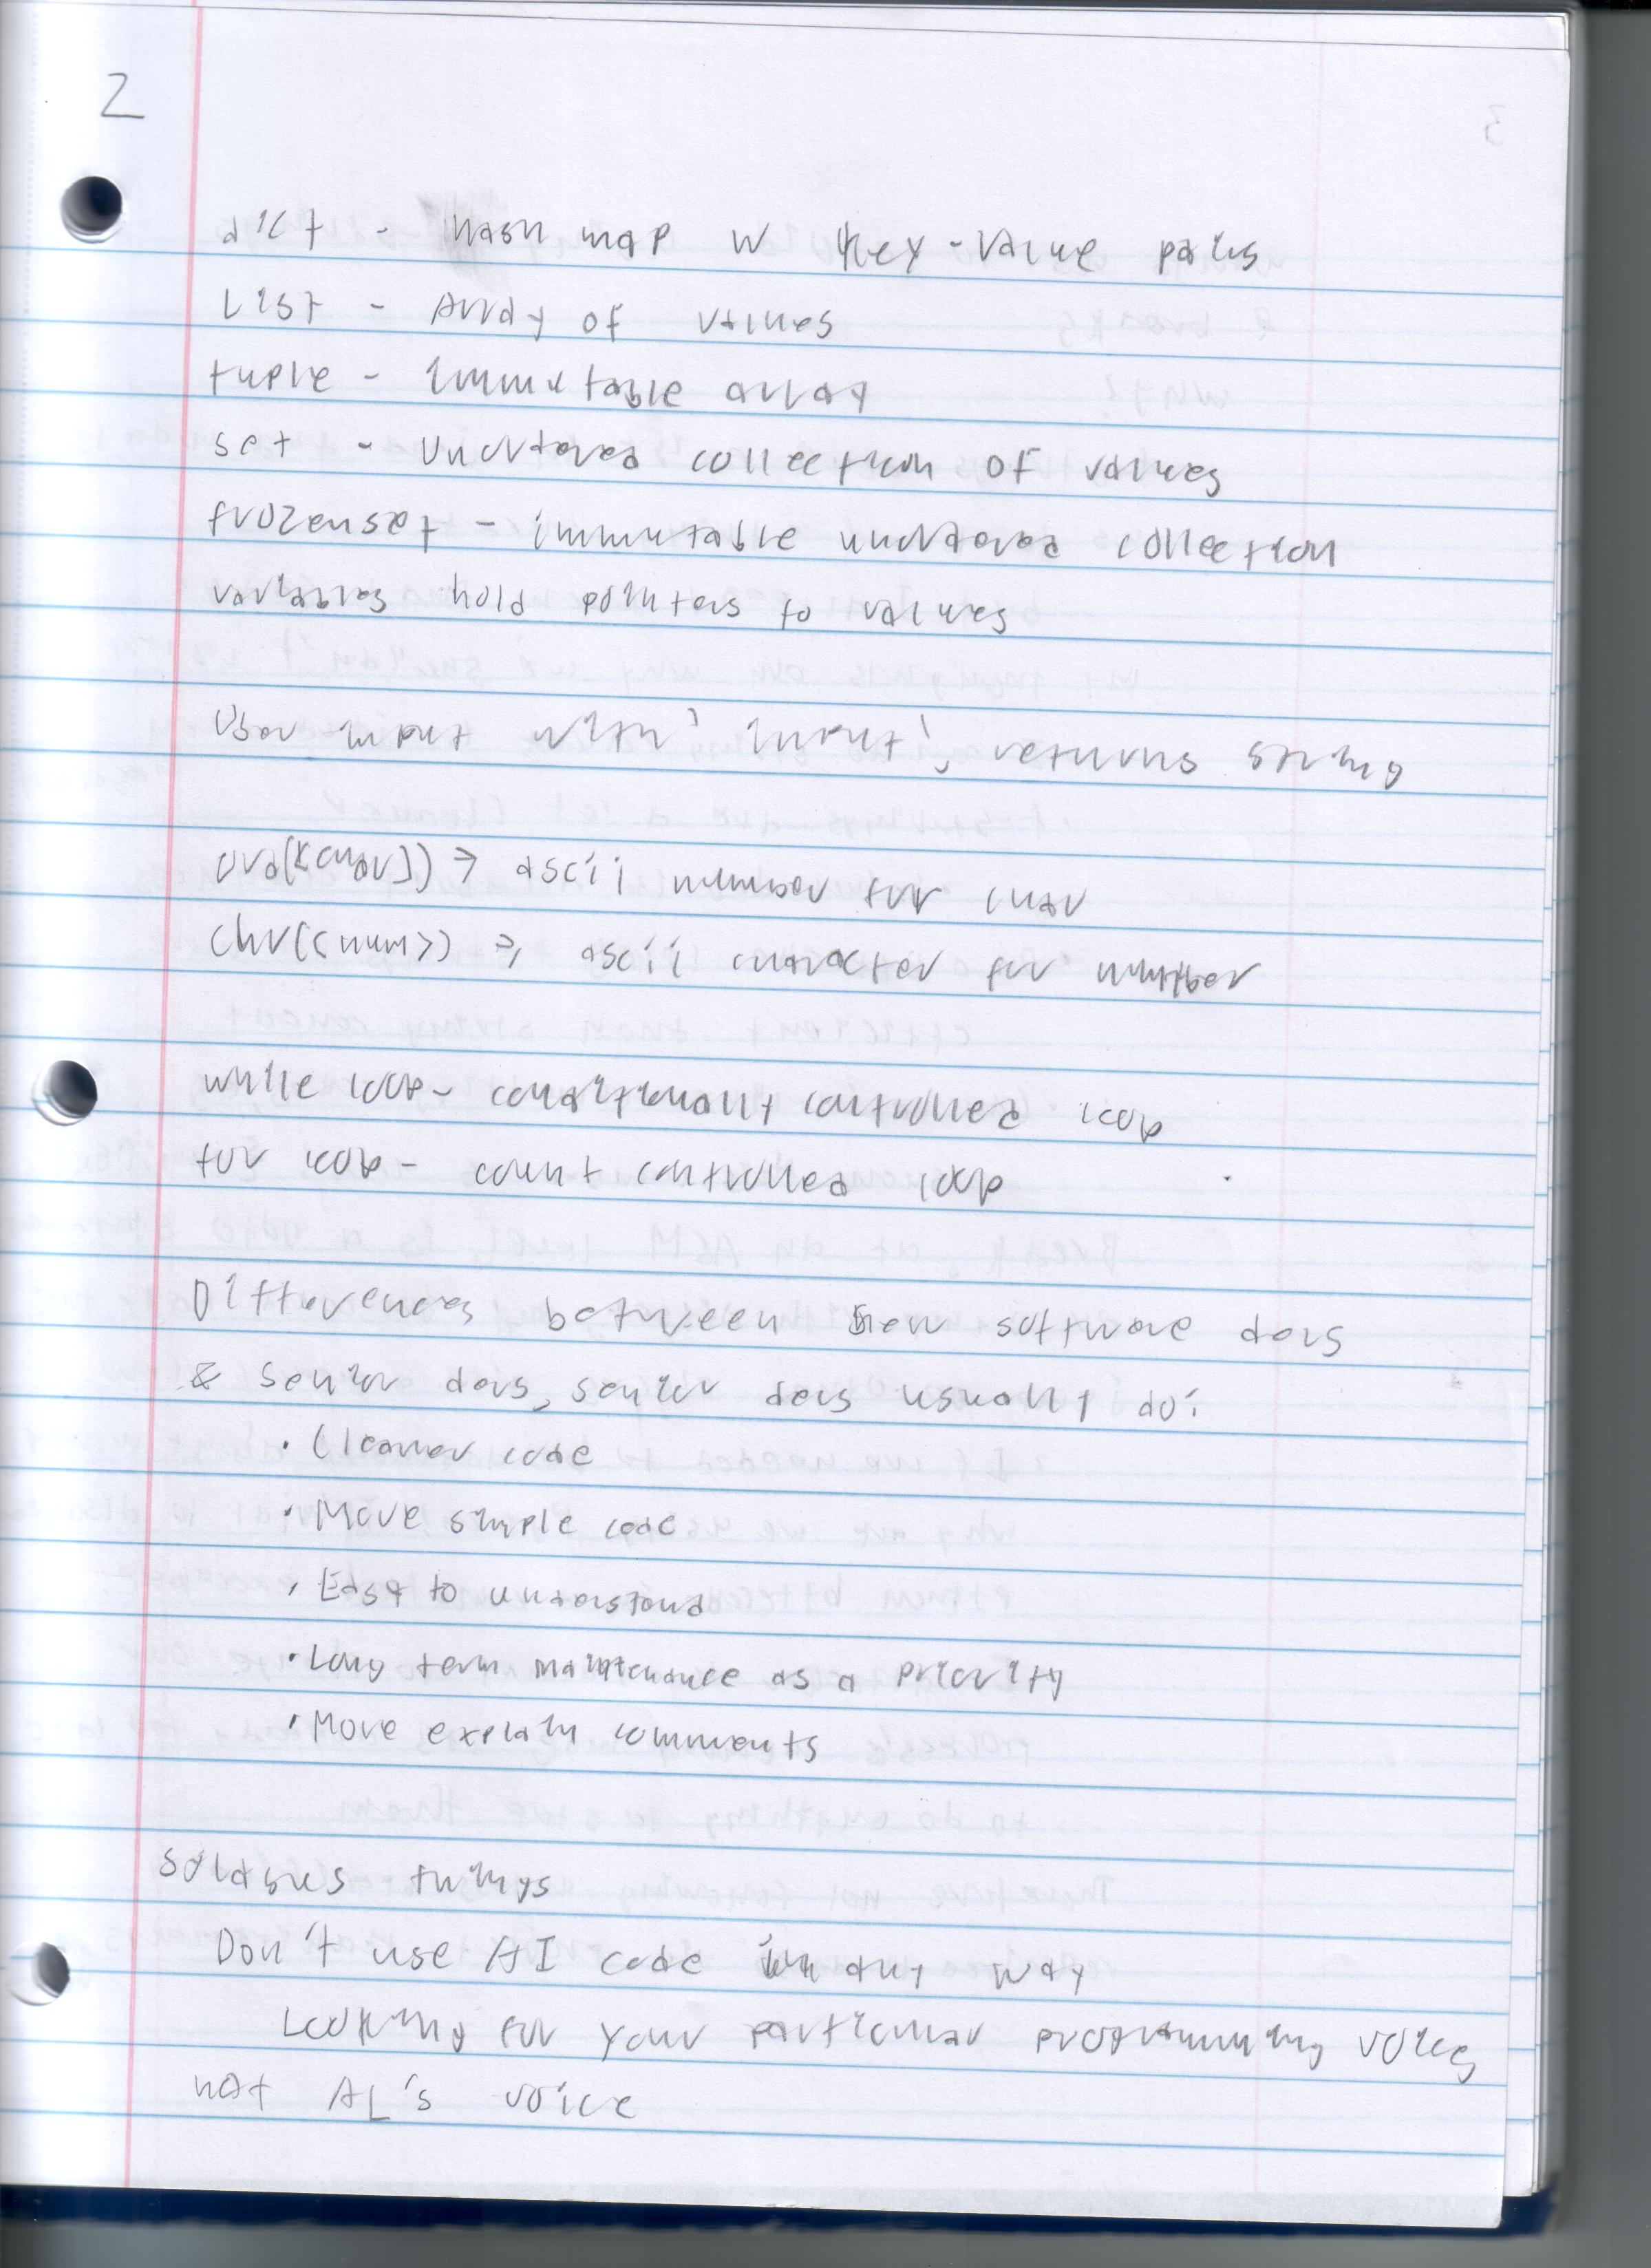 2
dict - hash map w key-value pairs
List - Array of values
tuple - immutable array
set - Unordered collection of values
frozenset - immutable unordered collection
variables hold pointers to values
User input with 'input', returns string
ord([char]) => ascii number for char
chr(<num>) => ascii character for number
while loop - conditionally controlled loop
for loop - count controlled loop
Differences between new software devs
& senior devs, senior devs usually do:
· Cleaner code
· More simple code
· Easy to understand
· Long term maintenance as a priority
· More explain comments
things
Don't use AI code in any way
Looking for your particular programming voice,
not AI's voice